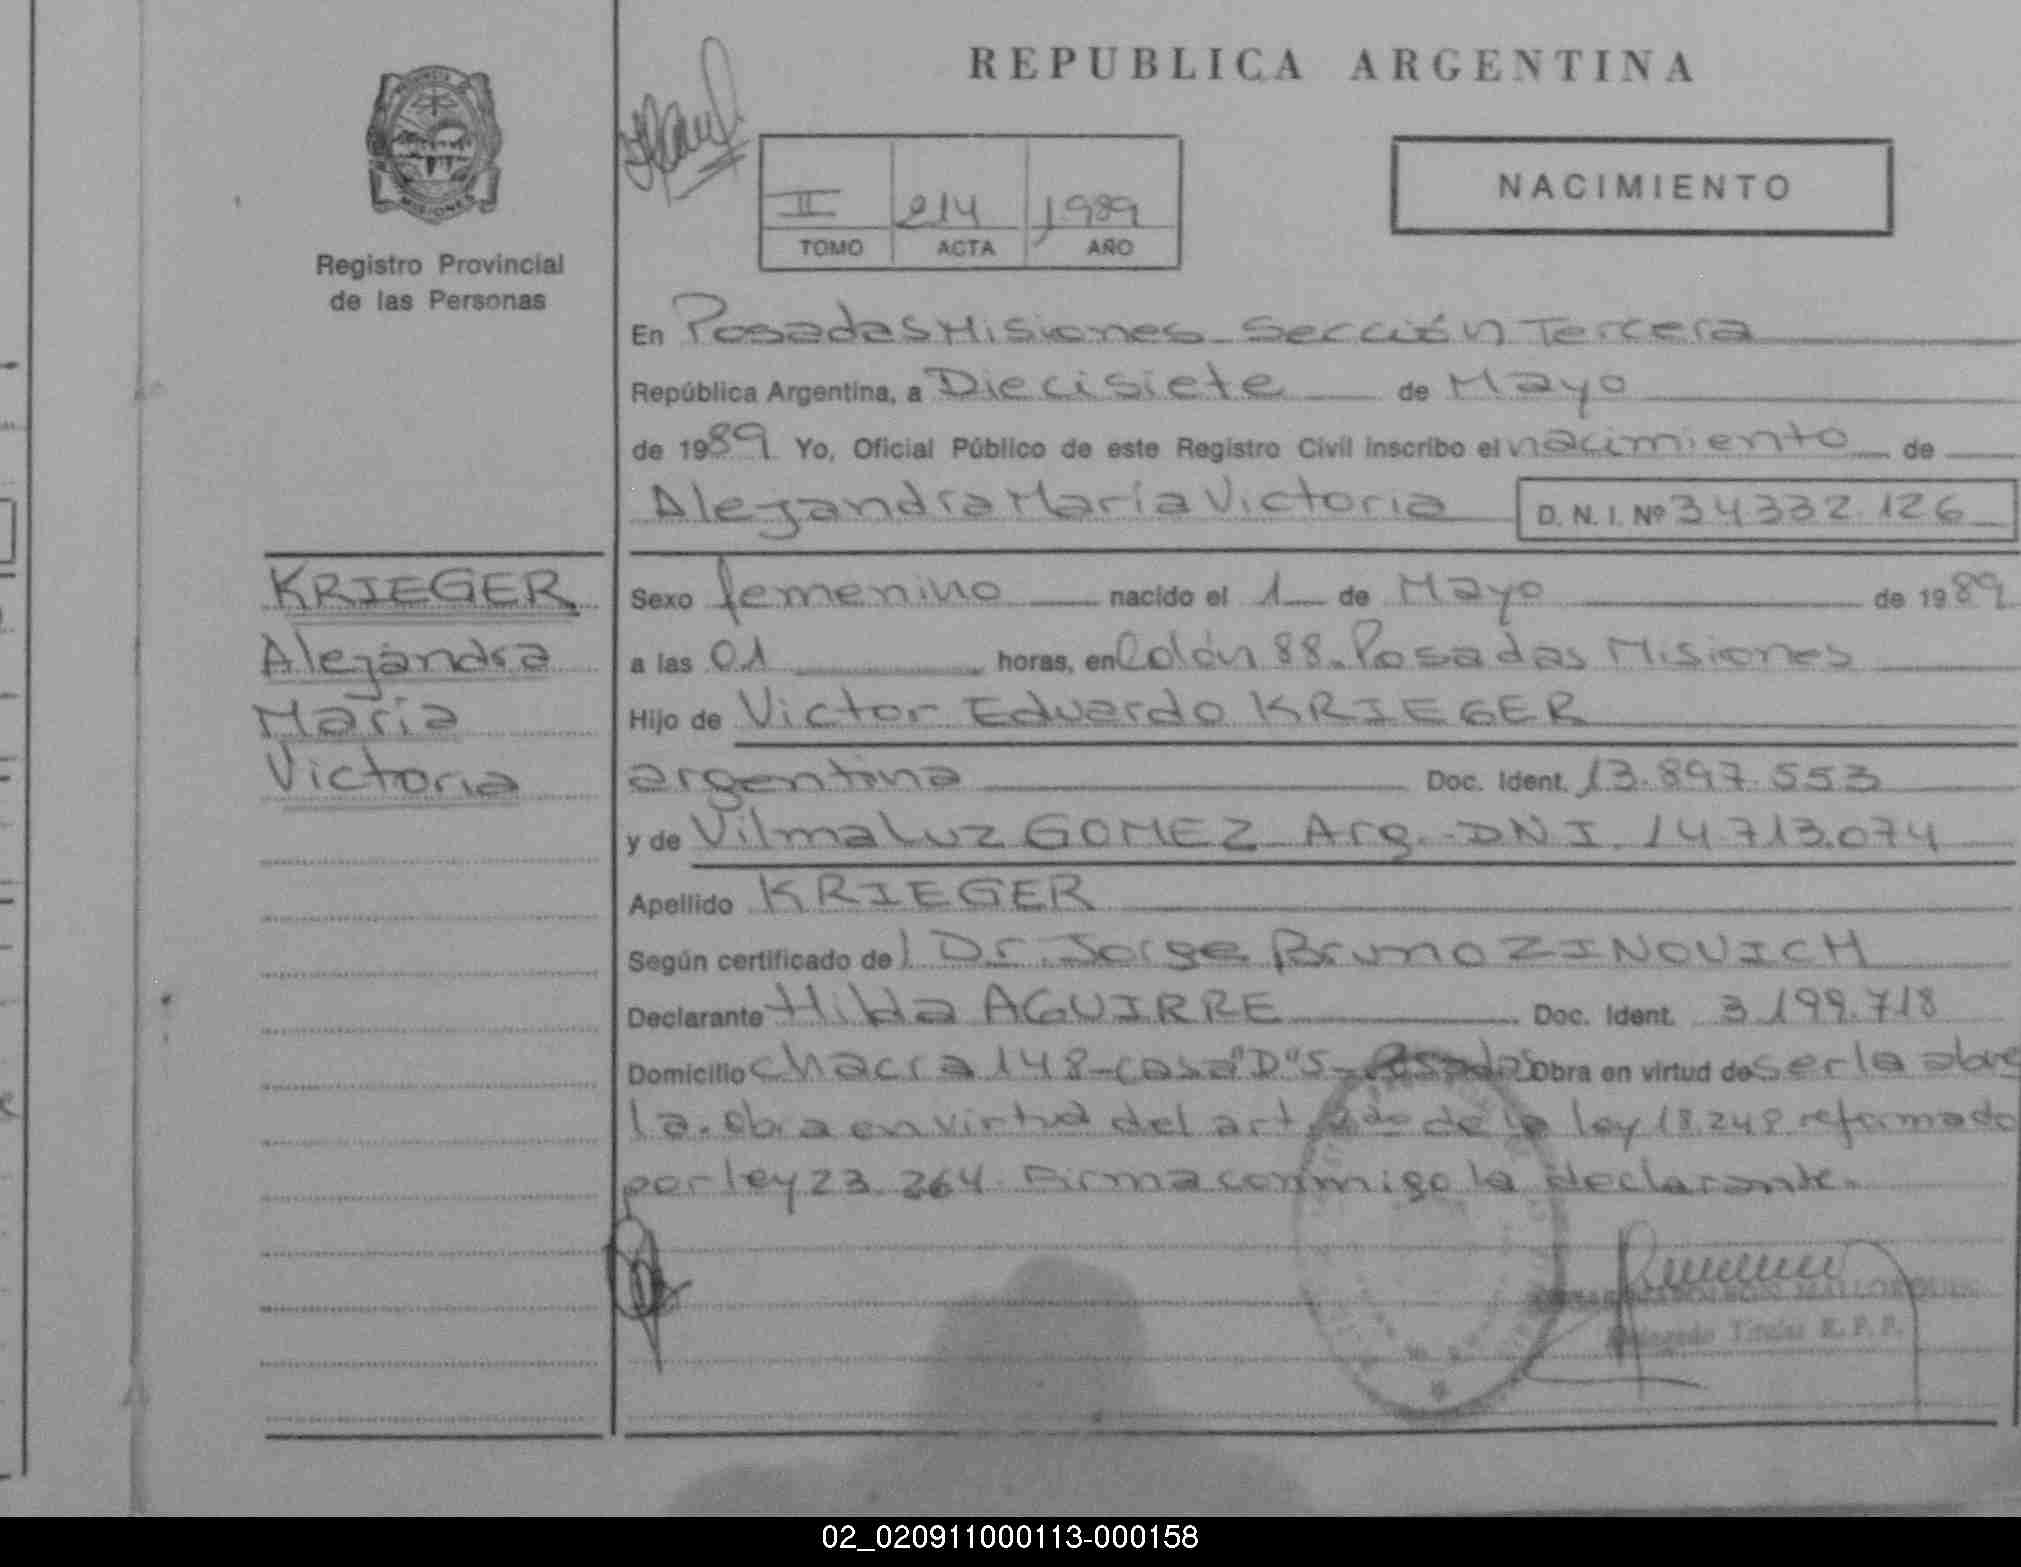 REPUBLICA ARGENTINA
PROVINCIA
MISIONES
Registro Provincial
de las Personas
II 214 1989
TOMO ACTA AÑO
NACIMIENTO
En Posadas Misiones Sección Tercera
República Argentina, a Diecisiete de Mayo
de 1989 Yo, Oficial Público de este Registro Civil inscribo el nacimiento de
Alejandra María Victoria D. N. I. Nº 34332.126
KRIEGER
Alejandra
María
Victoria
Sexo femenino nacido el 1 de Mayo de 1989
a las 01 horas, en Colón 88. Posadas Misiones
Hijo de Victor Eduardo KRIEGER
argentina Doc. Ident. 13.897.553
y de Vilma Luz GOMEZ Arg. DNI. 14.713.074
Apellido KRIEGER
Según certificado del Dr. Jorge Bruno ZINOVICH
Declarante Hilda AGUIRRE Doc. Ident. 3.199.718
Domicilio Chacra 148-casa "D" 5- Posadas Obra en virtud de ser la abue
la. Obra en virtud del art. 2do de la ley 18.248 reformado
por ley 23.264. Firma conmigo la declarante.
NAPOLEON MALLORQUIN
Delegado Titular R.P.P.
02_020911000113-000158